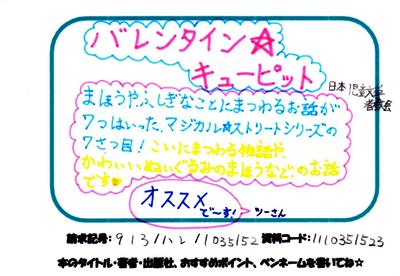 バレンタイン☆
キューピット
日本児童文学
者協会
まほうや、ふしぎなことにまつわるお話が
7つはいった、マジカル☆ストリートシリーズの
7さつ目!こいにまつわる物語や、
かわいい、ぬいぐるみのまほうなどのお話
です
オススメ
で〜す!
ツーさん
請求記号:913/ハレ/1035152 資料コード:1110351523
本のタイトル・著者・出版社、おすすめポイント、ペンネームを書いてね☆